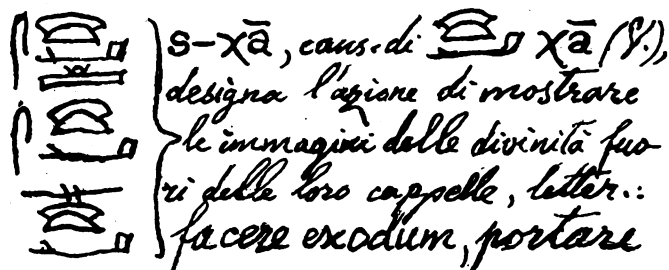 𓋴𓈍𓂝𓏛
𓋴𓈍𓂝
𓊃𓈍𓂝
s-χā, caus. di 𓈍𓂝 χā (V.),
designa l'azione di mostrare
le immagini delle divinità fuo-
ri delle loro cappelle, letter.:
facere exodum, portare